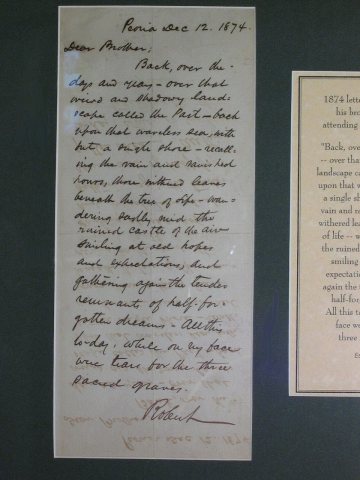 Peoria Dec 12. 1874.
Dear Brother;
Back, over the
days and years – over that
weird and shadowy land=
scape called the Past – back
upon that waveless sea, with
but a single shore – recall-
ing the vain and vanished
hours, those withered leaves
beneath the tree of life – wan-
dering sadly mid the
ruined castle of the air
smiling at old hopes
and expectations, and
gathering again the tender
remnants of half-for-
gotten dreams – All this
to-day, while on my face
were tears for the three
sacred graves.
Robert
1874 lette
his bro
attending
"Back, ove
-- over tha
landscape ca
upon that w
a single sh
vain and
withered lea
of life -- w
the ruined
smiling
expectati
again the
half-for
All this t
face we
three